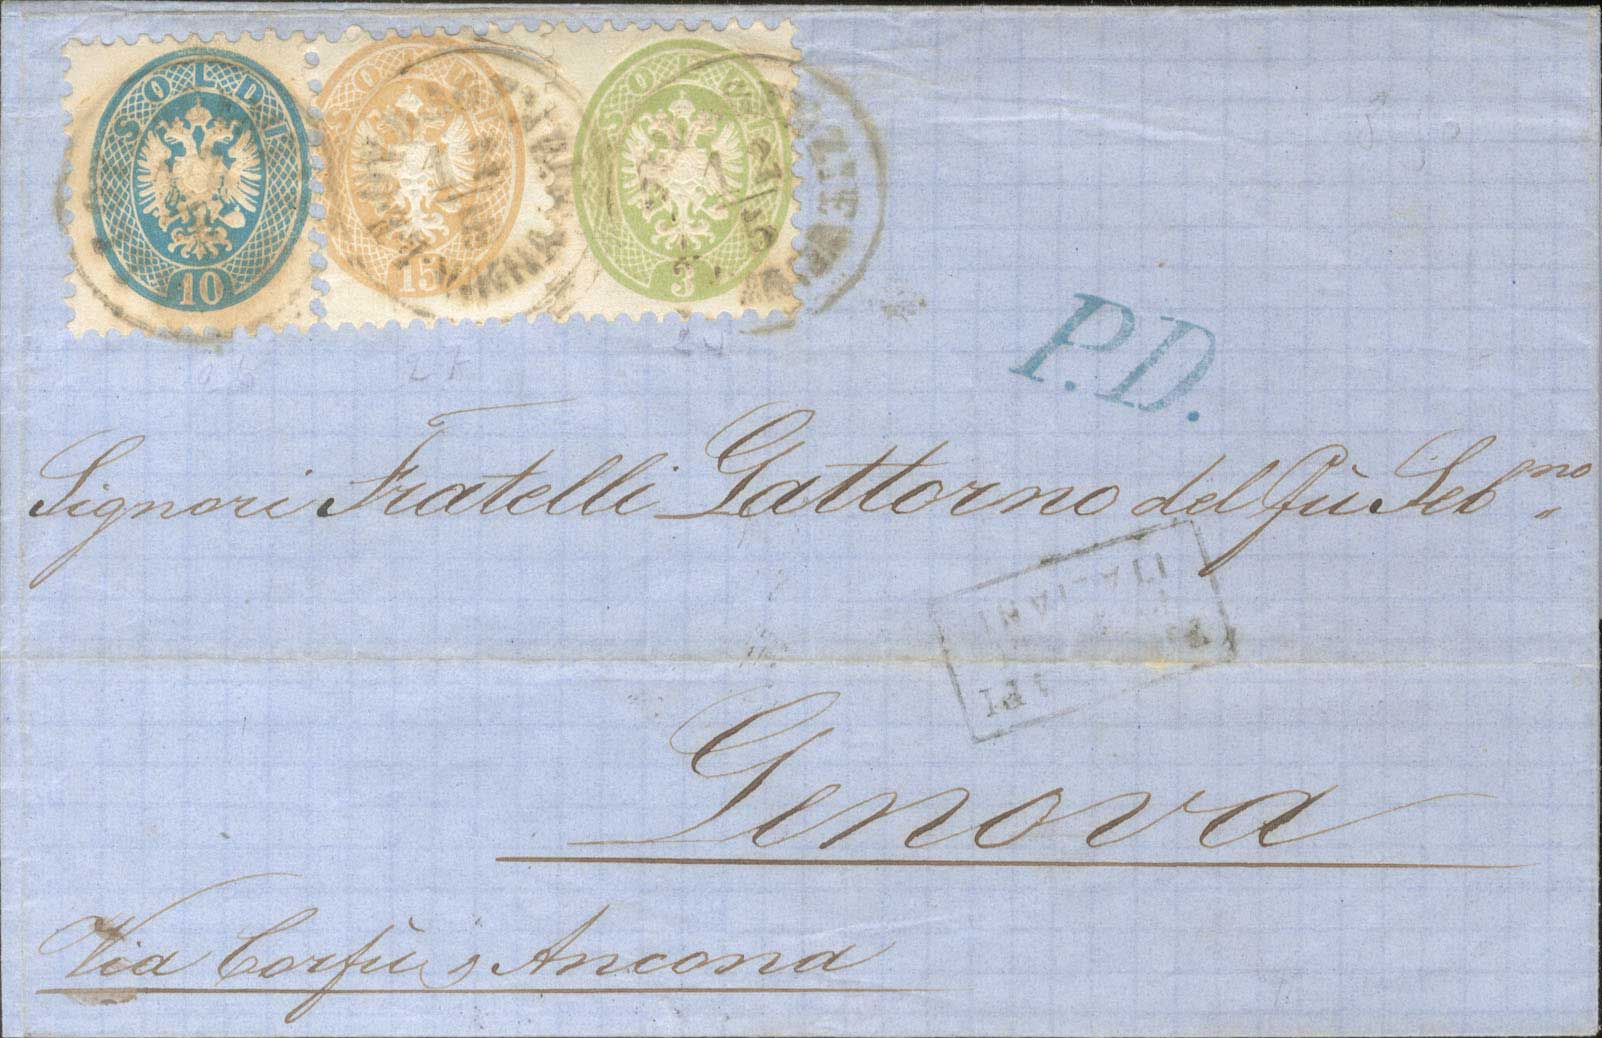 SOLDI SOLDI SOLDI
10 15 3
P.D.
Signori Fratelli Gattorno del fù Seb.no
ITALIANI
Genova
Via Corfù, Ancona